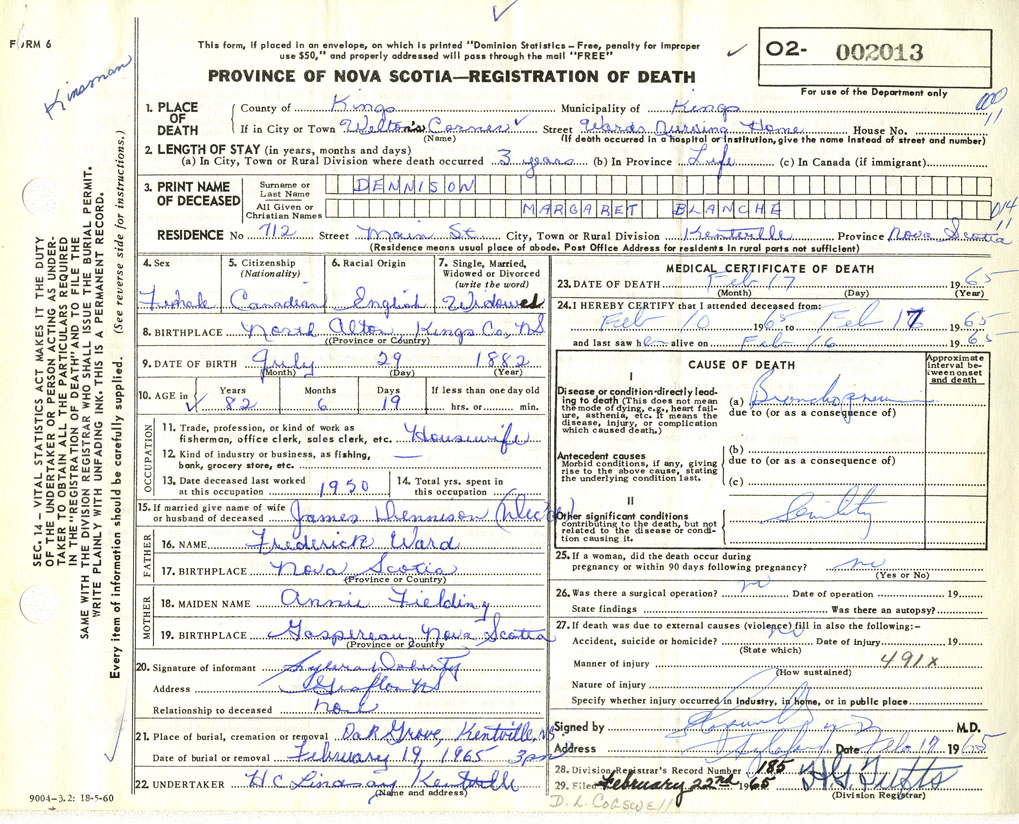 FORM 6
This form, if placed in an envelope, on which is printed "Dominion Statistics – Free, penalty for improper
use $50," and properly addressed will pass through the mail "FREE"
O2- 002013
For use of the Department only
Kinsman
PROVINCE OF NOVA SCOTIA—REGISTRATION OF DEATH
SEC. 14 – VITAL STATISTICS ACT MAKES IT THE DUTY
OF THE UNDERTAKER OR PERSON ACTING AS UNDER-
TAKER TO OBTAIN ALL THE PARTICULARS REQUIRED
IN THE "REGISTRATION OF DEATH" AND TO FILE THE
SAME WITH THE DIVISION REGISTRAR WHO SHALL ISSUE THE BURIAL PERMIT.
WRITE PLAINLY WITH UNFADING INK. THIS IS A PERMANENT RECORD.
Every item of information should be carefully supplied. (See reverse side for instructions.)
1. PLACE OF DEATH
County of Kings Municipality of Kings
If in City or Town Welton's Corner Street Wards Nursing Home House No.
(Name) (If death occurred in a hospital or institution, give the name instead of street and number)
2. LENGTH OF STAY (in years, months and days)
(a) In City, Town or Rural Division where death occurred 3 years (b) In Province Life (c) In Canada (if immigrant)
3. PRINT NAME OF DECEASED
Surname or Last Name DENNISON
All Given or Christian Names MARGARET BLANCHE
014
11
RESIDENCE No 712 Street Main St. City, Town or Rural Division Kentville Province Nova Scotia
(Residence means usual place of abode. Post Office Address for residents in rural parts not sufficient)
4. Sex Female
5. Citizenship (Nationality) Canadian
6. Racial Origin English
7. Single, Married, Widowed or Divorced (write the word) Widowed
8. BIRTHPLACE North Alton Kings Co, NS
(Province or Country)
9. DATE OF BIRTH July 29 1882
(Month) (Day) (Year)
10. AGE in Years 82 Months 6 Days 19 If less than one day old hrs. or min.
OCCUPATION
11. Trade, profession, or kind of work as
fisherman, office clerk, sales clerk, etc. Housewife
12. Kind of industry or business, as fishing,
bank, grocery store, etc. —
13. Date deceased last worked at this occupation 1950
14. Total yrs. spent in this occupation
15. If married give name of wife or husband of deceased James Dennison
FATHER
16. NAME Frederick Ward
17. BIRTHPLACE Nova Scotia
(Province or Country)
MOTHER
18. MAIDEN NAME Annie Fielding
19. BIRTHPLACE Gaspereau, Nova Scotia
(Province or Country)
20. Signature of informant Doherty
Address Grafton NS
Relationship to deceased none
21. Place of burial, cremation or removal Oak Grove, Kentville, NS
Date of burial or removal February 19, 1965 3pm
22. UNDERTAKER H C Lindsay Kentville
(Name and address)
9004–3.2: 18-5-60
MEDICAL CERTIFICATE OF DEATH
23. DATE OF DEATH Feb 17 1965
(Month) (Day) (Year)
24. I HEREBY CERTIFY that I attended deceased from:
Feb 10 1965 to Feb 17 1965
and last saw her alive on Feb 16 1965
CAUSE OF DEATH
Approximate interval between onset and death
I
Disease or condition directly leading to death (This does not mean the mode of dying, e.g., heart failure, asthenia, etc. It means the disease, injury, or complication which caused death.)
(a) Bronchopneum
due to (or as a consequence of)
Antecedent causes
Morbid conditions, if any, giving rise to the above cause, stating the underlying condition last.
(b)
due to (or as a consequence of)
(c)
II
Other significant conditions
contributing to the death, but not related to the disease or condition causing it.
Senility
25. If a woman, did the death occur during
pregnancy or within 90 days following pregnancy? no
(Yes or No)
26. Was there a surgical operation? no Date of operation 19
State findings Was there an autopsy?
27. If death was due to external causes (violence) fill in also the following:–
Accident, suicide or homicide? Date of injury 19
(State which)
Manner of injury 491x
(How sustained)
Nature of injury
Specify whether injury occurred in industry, in home, or in public place
Signed by M.D.
Address Date Feb 19 1965
28. Division Registrar's Record Number 185
29. Filed February 22nd 1965 H.G. Tufts
(Division Registrar)
D. L. COGSWELL